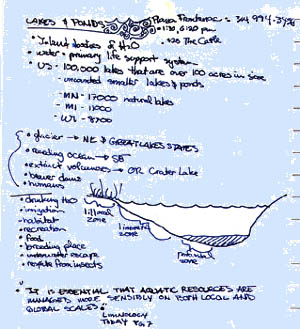 LAKES & PONDS
• 7:30, 9:20 pm
• $20 The Castle
• Inland bodies of H2O
• water • primary life support system
• US - 100,000 lakes that are over 100 acres in size
- uncounted smaller lakes & ponds
- MN - 17000 natural lakes
- MI - 11000
- WI - 8700
• glacier → NE & GREAT LAKES STATES
• receding ocean → SE
• extinct volcanoes → OR Crater Lake
• beaver dams
• humans
• drinking H2O
• irrigation
• habitat
• recreation
• food
• breeding place
• underwater escape
• respite from insects
littoral zone
limnetic zone
profundal zone
"IT IS ESSENTIAL THAT AQUATIC RESOURCES ARE
MANAGED MORE SENSIBLY ON BOTH LOCAL AND
GLOBAL SCALES"
Limnology
TODAY